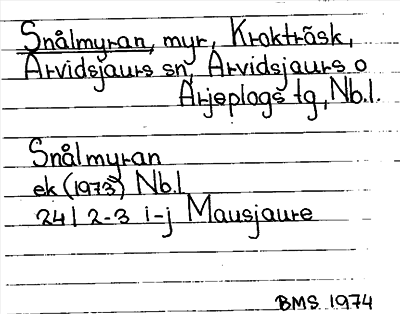 Snålmyran, myr, Krokträsk,
Arvidsjaurs sn, Arvidsjaurs o
Arjeplogs tg, Nb.l.
Snålmyran
ek (1973) Nb.l
24I 2-3 i-j Mausjaure
BMS 1974